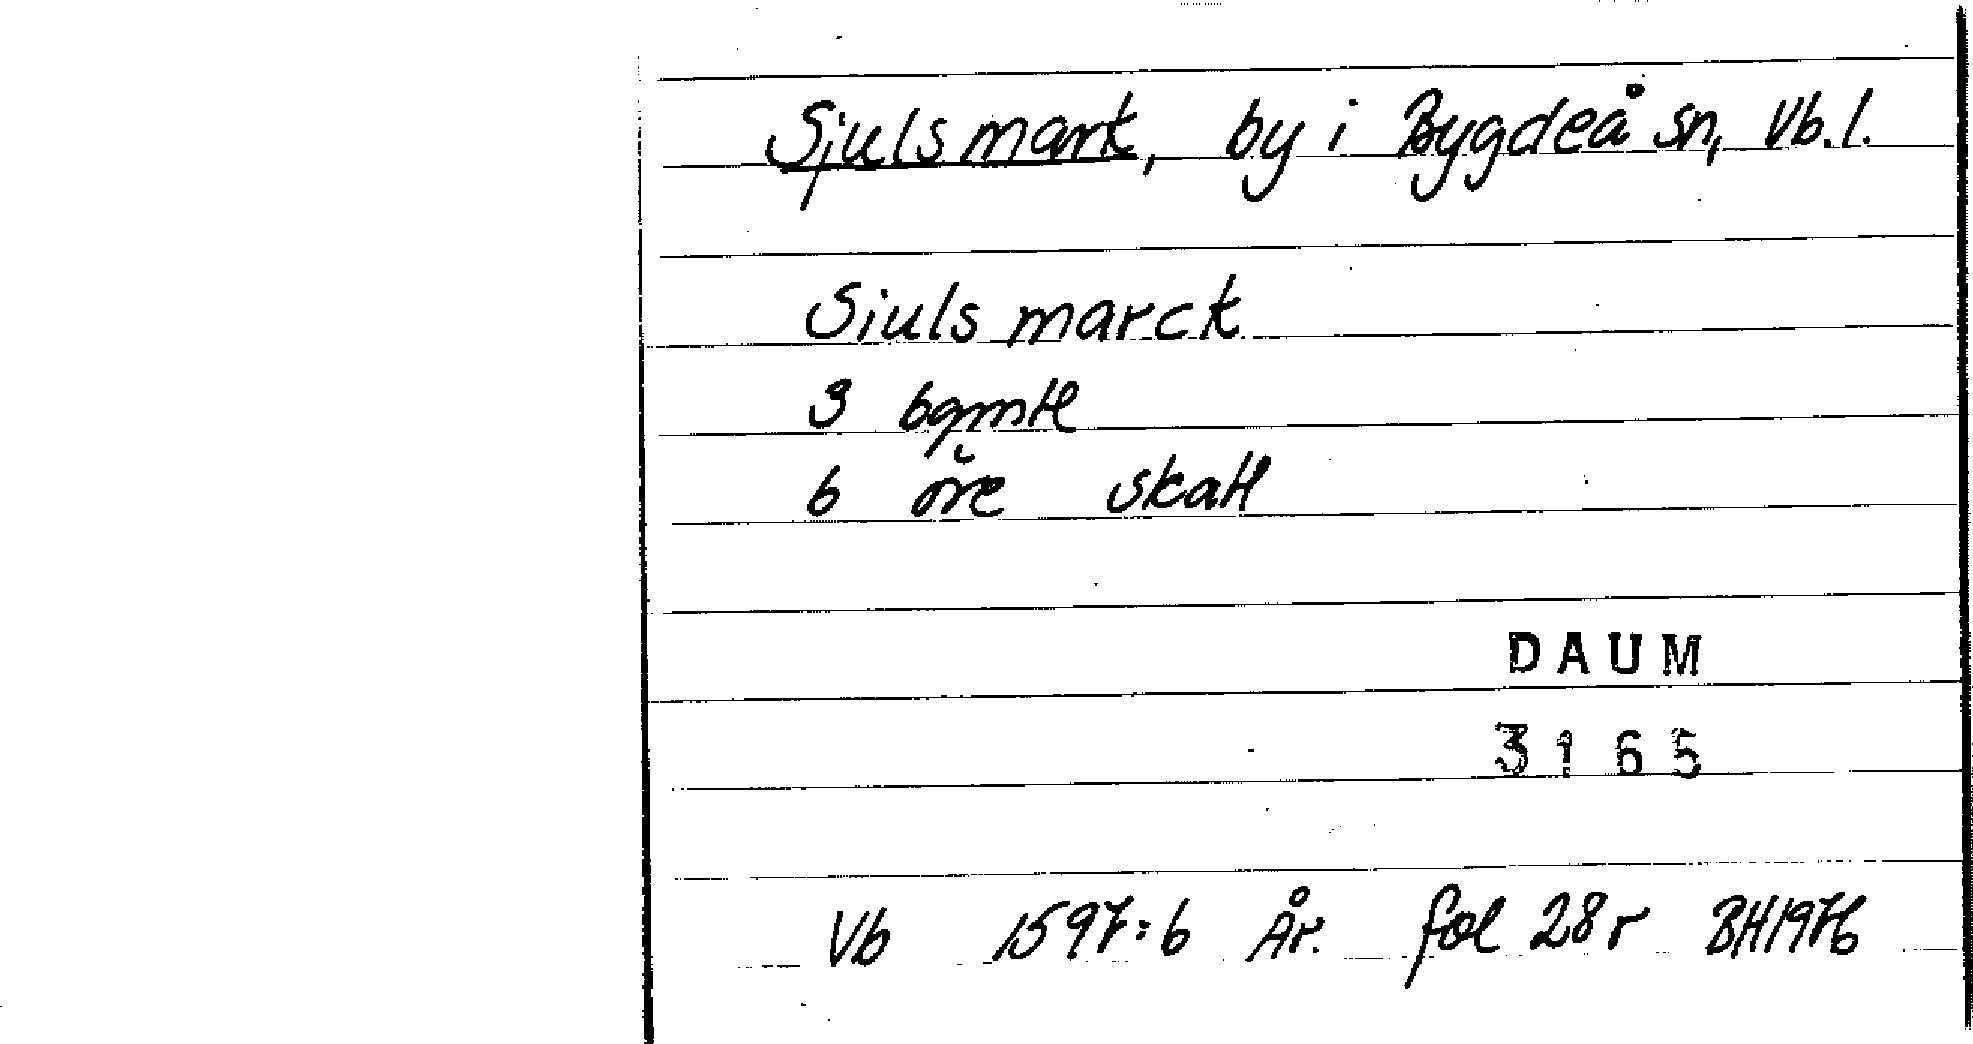 Sjulsmark, by i Bygdeå sn, Vb.l.
Siuls marck
3 bqmtl
6 öre skatt
DAUM
3165
Vb 1597:6 År. fol 28r BH1976